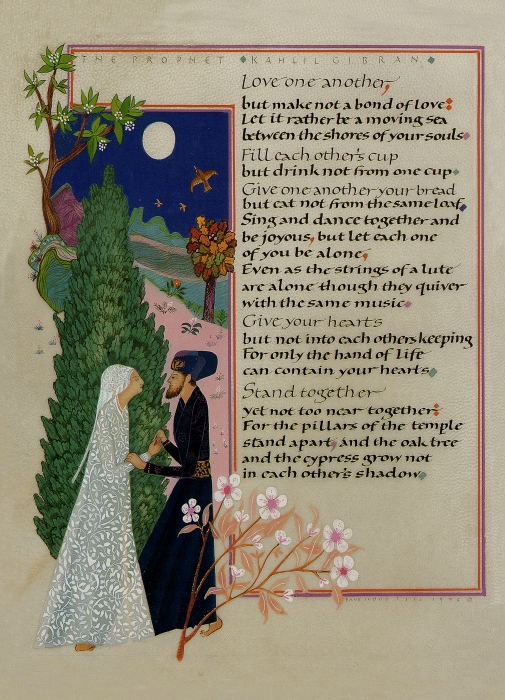 THE PROPHET ◆ KAHLIL GIBRAN ◆
Love one another,
but make not a bond of love:
Let it rather be a moving sea
between the shores of your souls.
Fill each other's cup
but drink not from one cup.
Give one another your bread
but eat not from the same loaf.
Sing and dance together and
be joyous, but let each one
of you be alone,
Even as the strings of a lute
are alone though they quiver
with the same music.
Give your hearts
but not into each others keeping
For only the hand of Life
can contain your hearts.
Stand together
yet not too near together:
For the pillars of the temple
stand apart, and the oak tree
and the cypress grow not
in each other's shadow.